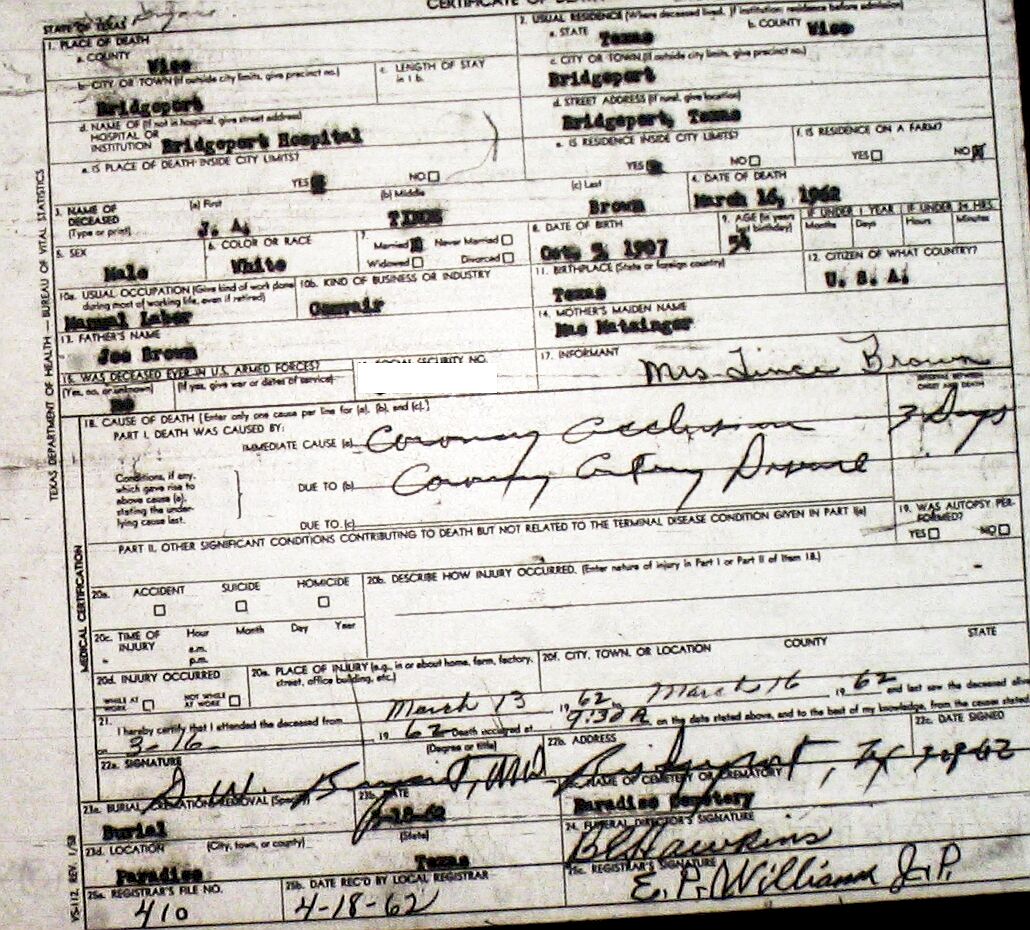 CERTIFICATE OF DEATH
STATE OF TEXAS
1. PLACE OF DEATH
a. COUNTY
Wise
2. USUAL RESIDENCE (Where deceased lived. If institution: residence before admission)
a. STATE Texas b. COUNTY Wise
b. CITY OR TOWN (If outside city limits, give precinct no.)
Bridgeport
c. LENGTH OF STAY
in 1 b.
c. CITY OR TOWN (If outside city limits, give precinct no.)
Bridgeport
d. NAME OF (If not in hospital, give street address)
HOSPITAL OR
INSTITUTION Bridgeport Hospital
d. STREET ADDRESS (If rural, give location)
Bridgeport, Texas
e. IS PLACE OF DEATH INSIDE CITY LIMITS?
YES NO
e. IS RESIDENCE INSIDE CITY LIMITS?
YES NO
f. IS RESIDENCE ON A FARM?
YES NO X
3. NAME OF
DECEASED
(Type or print)
(a) First
J. A.
(b) Middle
(c) Last
Brown
4. DATE OF DEATH
March 16, 1962
5. SEX
Male
6. COLOR OR RACE
White
7.
Married Never Married
Widowed Divorced
8. DATE OF BIRTH
Oct. 5, 1907
9. AGE (In years
last birthday)
54
IF UNDER 1 YEAR
Months Days
IF UNDER 24 HRS.
Hours Minutes
10a. USUAL OCCUPATION (Give kind of work done
during most of working life, even if retired)
Manual Labor
10b. KIND OF BUSINESS OR INDUSTRY
Convair
11. BIRTHPLACE (State or foreign country)
Texas
12. CITIZEN OF WHAT COUNTRY?
U. S. A.
13. FATHER'S NAME
Joe Brown
14. MOTHER'S MAIDEN NAME
Mae Matzinger
15. WAS DECEASED EVER IN U.S. ARMED FORCES?
(Yes, no, or unknown) (If yes, give war or dates of service)
No
SOCIAL SECURITY NO.
17. INFORMANT
Mrs Brown
18. CAUSE OF DEATH [Enter only one cause per line for (a), (b), and (c).]
INTERVAL BETWEEN
ONSET AND DEATH
PART I. DEATH WAS CAUSED BY:
IMMEDIATE CAUSE (a) Coronary Occlusion 3 Days
Conditions, if any,
which gave rise to
above cause (a),
stating the under-
lying cause last.
DUE TO (b) Coronary Artery Disease
DUE TO (c)
PART II. OTHER SIGNIFICANT CONDITIONS CONTRIBUTING TO DEATH BUT NOT RELATED TO THE TERMINAL DISEASE CONDITION GIVEN IN PART I(a)
19. WAS AUTOPSY PER-
FORMED?
YES NO
20a. ACCIDENT SUICIDE HOMICIDE
20b. DESCRIBE HOW INJURY OCCURRED. (Enter nature of injury in Part I or Part II of Item 18.)
20c. TIME OF
INJURY
Hour Month Day Year
a.m.
p.m.
20d. INJURY OCCURRED
WHILE AT
WORK
NOT WHILE
AT WORK
20e. PLACE OF INJURY (e.g., in or about home, farm, factory,
street, office building, etc.)
20f. CITY, TOWN, OR LOCATION COUNTY STATE
21.
I hereby certify that I attended the deceased from March 13, 19 62 to March 16, 19 62 and last saw the deceased alive
on 3-16- 19 62 Death occurred at 9:30 A. on the date stated above, and to the best of my knowledge, from the causes stated
22a. SIGNATURE (Degree or title)
22b. ADDRESS
Bridgeport, Tx
22c. DATE SIGNED
23a. BURIAL, CREMATION, REMOVAL (Specify)
Burial
23b. DATE
3-18-62
NAME OF CEMETERY OR CREMATORY
Paradise Cemetery
23d. LOCATION (City, town, or county) (State)
Paradise Texas
24. FUNERAL DIRECTOR'S SIGNATURE
Hawkins
25a. REGISTRAR'S FILE NO.
410
25b. DATE REC'D BY LOCAL REGISTRAR
4-18-62
25c. REGISTRAR'S SIGNATURE
E. P. Williams J.P.
TEXAS DEPARTMENT OF HEALTH — BUREAU OF VITAL STATISTICS
MEDICAL CERTIFICATION
VS-112, REV. 1/58